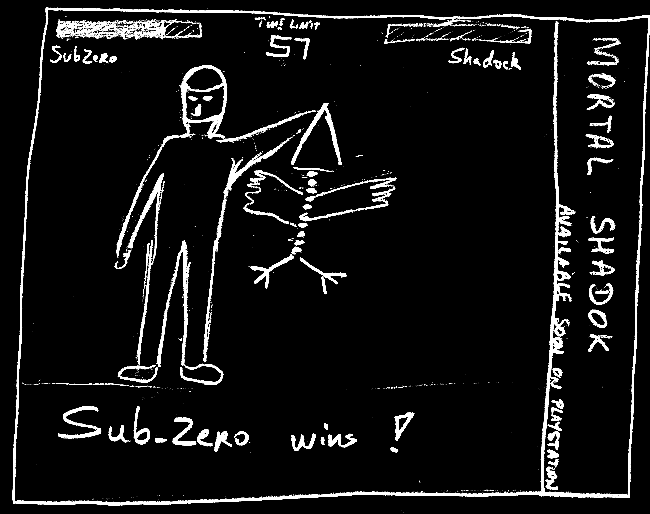 TIME LIMIT
57
SubZero
Shadock
Sub-Zero wins !
MORTAL SHADOK
AVAILABLE SOON ON PLAYSTATION